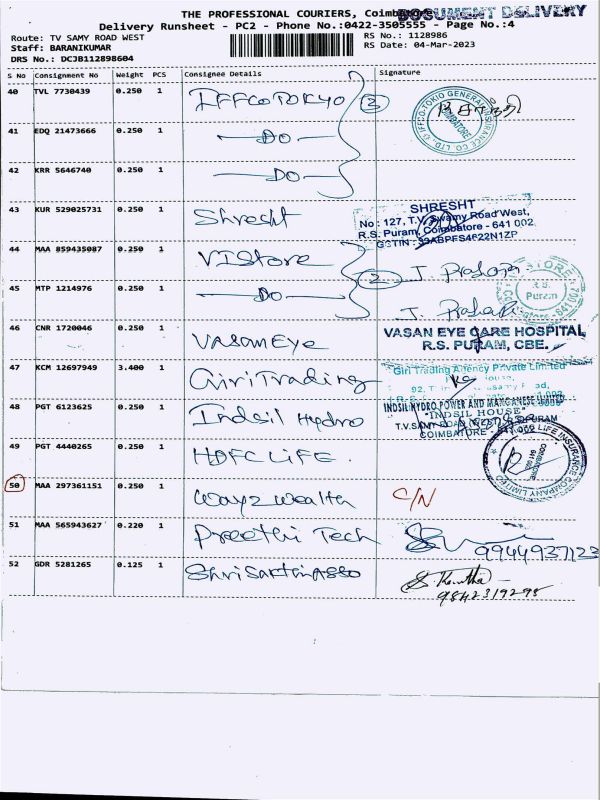 THE PROFESSIONAL COURIERS, Coimbatore
DOCUMENT DELIVERY
Delivery Runsheet - PC2 - Phone No.:0422-3505555 - Page No.:4
Route: TV SAMY ROAD WEST
RS No.: 1128986
Staff: BARANIKUMAR
RS Date: 04-Mar-2023
DRS No.: DCJB112898604
S No Consignment No Weight PCS Consignee Details Signature
40 TVL 7730439 0.250 1 IFFCOTOKYO 3
IFFCO-TOKIO GENERAL INSURANCE CO. LTD.
COIMBATORE
41 EDQ 21473666 0.250 1 DO
42 KRR 5646740 0.250 1 DO
43 KUR 529025731 0.250 1 Shresht
SHRESHT
No : 127, T.V. Swamy Road West,
R.S. Puram, Coimbatore - 641 002
GSTIN : 33ABPFS4F22N1ZP
44 MAA 859435087 0.250 1 VIStore 2 J. Prabha
45 MTP 1214976 0.250 1 DO J. Prabha
R.S. Puram
46 CNR 1720046 0.250 1 Vasan Eye
VASAN EYE CARE HOSPITAL
R.S. PURAM, CBE.
47 KCM 12697949 3.400 1 Giri Trading
Giri Trading Agency Private Limited
48 PGT 6123625 0.250 1 Indsil Hydro
INDSIL HYDRO POWER AND MANGANESE LIMITED
"INDSIL HOUSE"
T.V. SAMY ROAD
COIMBATORE - 641 002
49 PGT 4440265 0.250 1 HDFC LIFE.
LIFE INSURANCE COMPANY LIMITED
COIMBATORE
50 MAA 297361151 0.250 1 Wayz Wealth C/N
51 MAA 565943627 0.220 1 Preethi Tech 9944937123
52 GDR 5281265 0.125 1 Shri Sakthi Asso S. Kavitha
9842319295